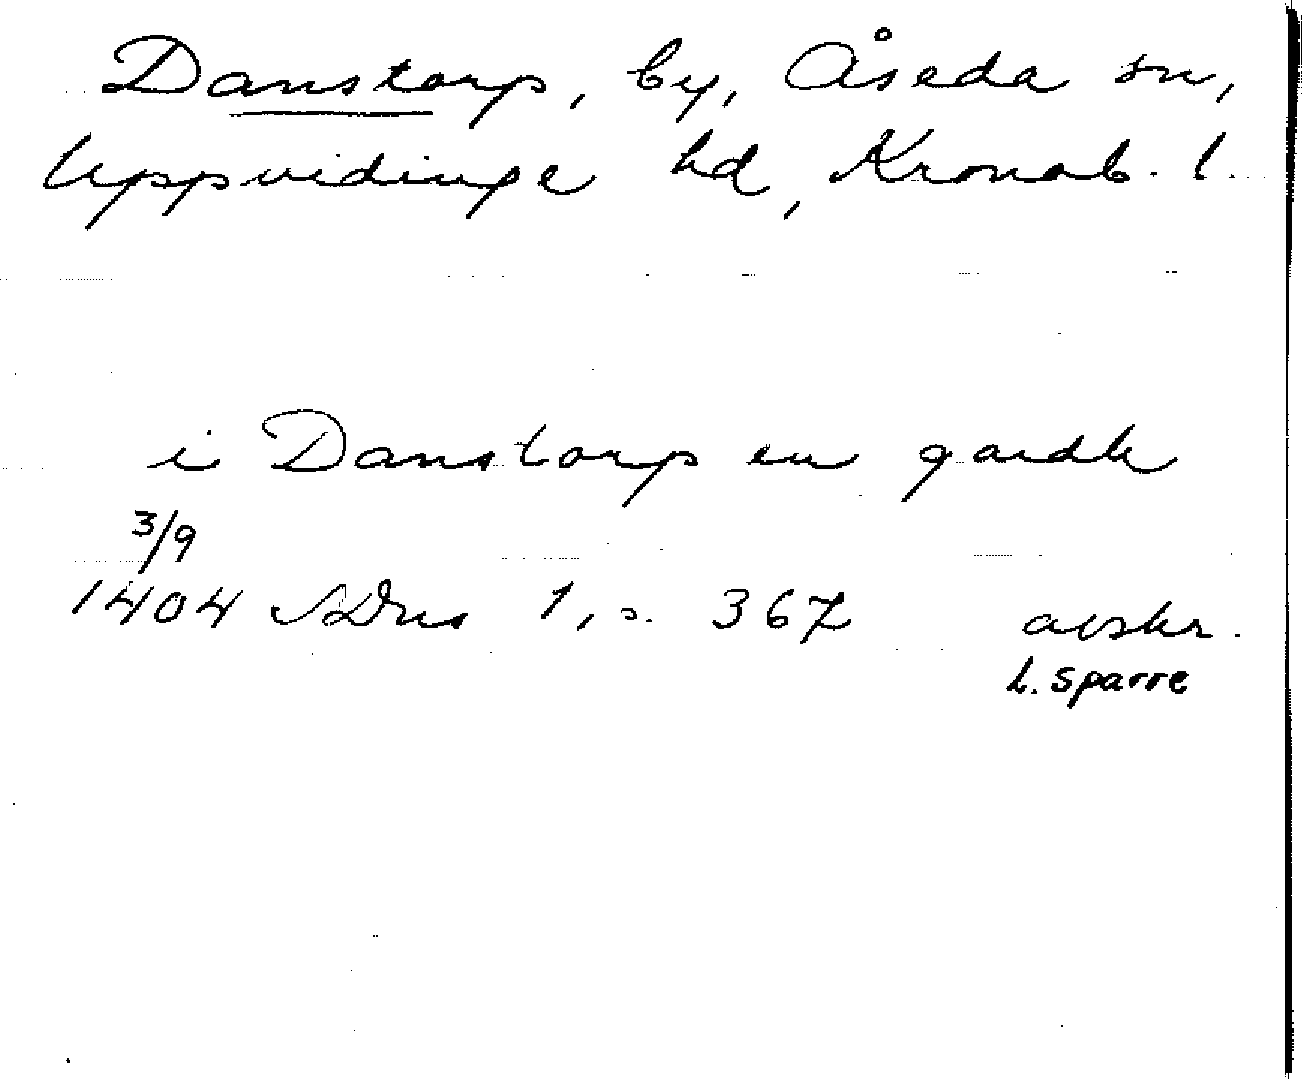 Danstorp, by, Åseda sn,
Uppvidinge hd, Kronob. l.
i Danstorp en gardh
3/9
1404 SDns 1, s. 367 avskr.
L. Sparre